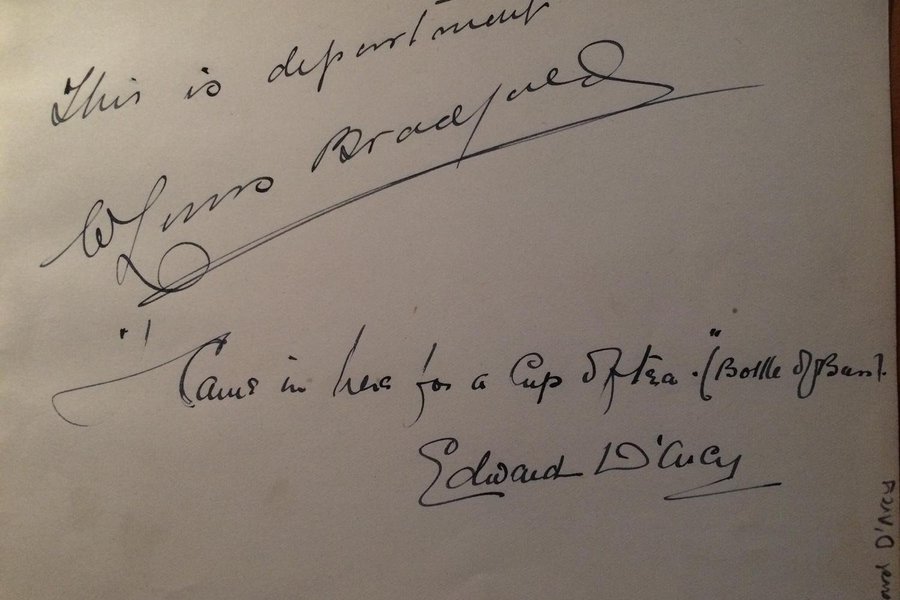 This is department
W Louis Bradfield
"I Came in here for a Cup of tea." (Bottle of Bass).
Edward D'Arcy
ward D'Arcy